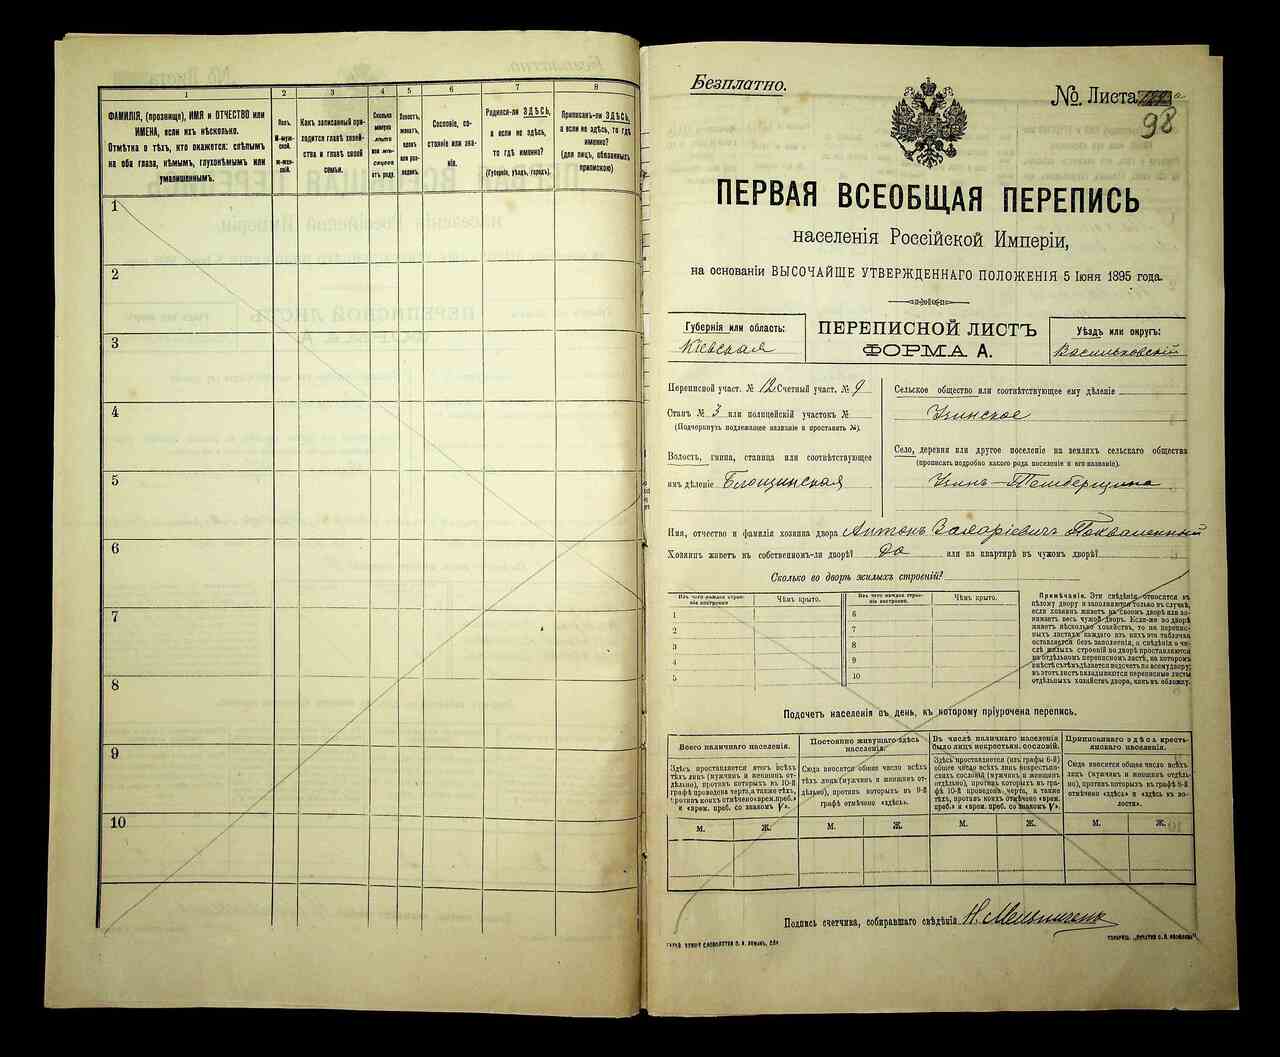 1
2
3
4
5
6
7
8
ФАМИЛІЯ, (прозвище), ИМЯ и ОТЧЕСТВО или
ИМЕНА, если ихъ нѣсколько.
Отмѣтка о тѣхъ, кто окажется: слѣпымъ
на оба глаза, нѣмымъ, глухонѣмымъ или
умалишеннымъ.
Полъ.
М-мужской.
Ж-женскій.
Какъ записанный приходится
главѣ хозяйства
и главѣ своей
семьи.
Сколько
минуло
лѣтъ
или мѣсяцевъ
отъ роду.
Холостъ,
женатъ,
вдовъ
или разведенъ.
Сословіе, состояніе
или званіе.
Родился-ли ЗДѢСЬ,
а если не здѣсь,
то гдѣ именно?
(Губернія, уѣздъ, городъ).
Приписанъ-ли ЗДѢСЬ,
а если не здѣсь, то гдѣ
именно?
(для лицъ, обязанныхъ
припискою)
1
2
3
4
5
6
7
8
9
10
Безплатно.
№ Листа
98
ПЕРВАЯ ВСЕОБЩАЯ ПЕРЕПИСЬ
населенія Россійской Имперіи,
на основаніи ВЫСОЧАЙШЕ УТВЕРЖДЕННАГО ПОЛОЖЕНІЯ 5 Іюня 1895 года.
Губернія или область:
Кіевская
ПЕРЕПИСНОЙ ЛИСТЪ
ФОРМА А.
Уѣздъ или округъ:
Васильковскій
Переписной участ. № 12 Счетный участ. № 9
Станъ № 3 или полицейскій участокъ №
(Подчеркнуть подлежащее названіе и проставить №).
Волость, гмина, станица или соотвѣтствующее
имъ дѣленіе Блощинская
Сельское общество или соотвѣтствующее ему дѣленіе
Узинское
Село, деревня или другое поселеніе на земляхъ сельскаго общества
(прописать подробно какого рода поселеніе и его названіе).
Узинъ-Темберщина
Имя, отчество и фамилія хозяина двора Антонъ Захаріевичъ
Хозяинъ живетъ въ собственном-ли дворѣ? Да или на квартирѣ въ чужом дворѣ?
Сколько во дворѣ жилыхъ строеній?
Изъ чего каждое строеніе построено
Чѣмъ крыто.
Изъ чего каждое строеніе построено
Чѣмъ крыто.
1
2
3
4
5
6
7
8
9
10
Примѣчаніе. Эти свѣдѣнія относятся къ
цѣлому двору и заполняются только въ случаѣ,
если хозяинъ живетъ на своемъ дворѣ или занимаетъ
весь чужой дворъ. Если-же во дворѣ
живетъ нѣсколько хозяйствъ, то на переписныхъ
листахъ каждаго изъ нихъ эта табличка
оставляется безъ заполненія, а свѣдѣнія о числѣ
жилыхъ строеній во дворѣ проставляются
на отдѣльномъ переписномъ листѣ, на которомъ
вмѣстѣ съ тѣмъ дѣлается подсчетъ по всему двору;
въ этотъ листъ вкладываются переписные листы
отдѣльныхъ хозяйствъ двора, какъ въ обложку.
Подсчетъ населенія въ день, къ которому пріурочена перепись.
Всего наличнаго населенія.
Здѣсь проставляется итогъ всѣхъ
тѣхъ лицъ (мужчинъ и женщинъ отдѣльно),
противъ которыхъ въ 10-й
графѣ проведена черта, а также тѣхъ,
противъ коихъ отмѣчено «врем. преб.»
и «врем. преб. со знакомъ V».
Постоянно живущаго здѣсь
населенія.
Сюда вносится общее число всѣхъ
тѣхъ лицъ (мужчинъ и женщинъ отдѣльно),
противъ которыхъ въ 9-й
графѣ отмѣчено «здѣсь».
Въ числѣ наличнаго населенія
было лицъ некрестьян. сословій.
Здѣсь проставляется (из графы 6-й)
общее число всѣхъ лицъ некрестьянскихъ
сословій (мужчинъ и женщинъ
отдѣльно), противъ которыхъ въ графѣ
10-й проведена черта, а также
тѣхъ, противъ коихъ отмѣчено «врем.
преб.» и «врем. преб. со знакомъ V».
Приписаннаго здѣсь крестьянскаго
населенія.
Сюда вносится общее число всѣхъ
лицъ (мужчинъ и женщинъ отдѣльно),
противъ которыхъ въ графѣ 8-й
отмѣчено «здѣсь» и «здѣсь въ волости».
М.
Ж.
М.
Ж.
М.
Ж.
М.
Ж.
Подпись счетчика, собиравшаго свѣдѣнія Н. Мельниченко